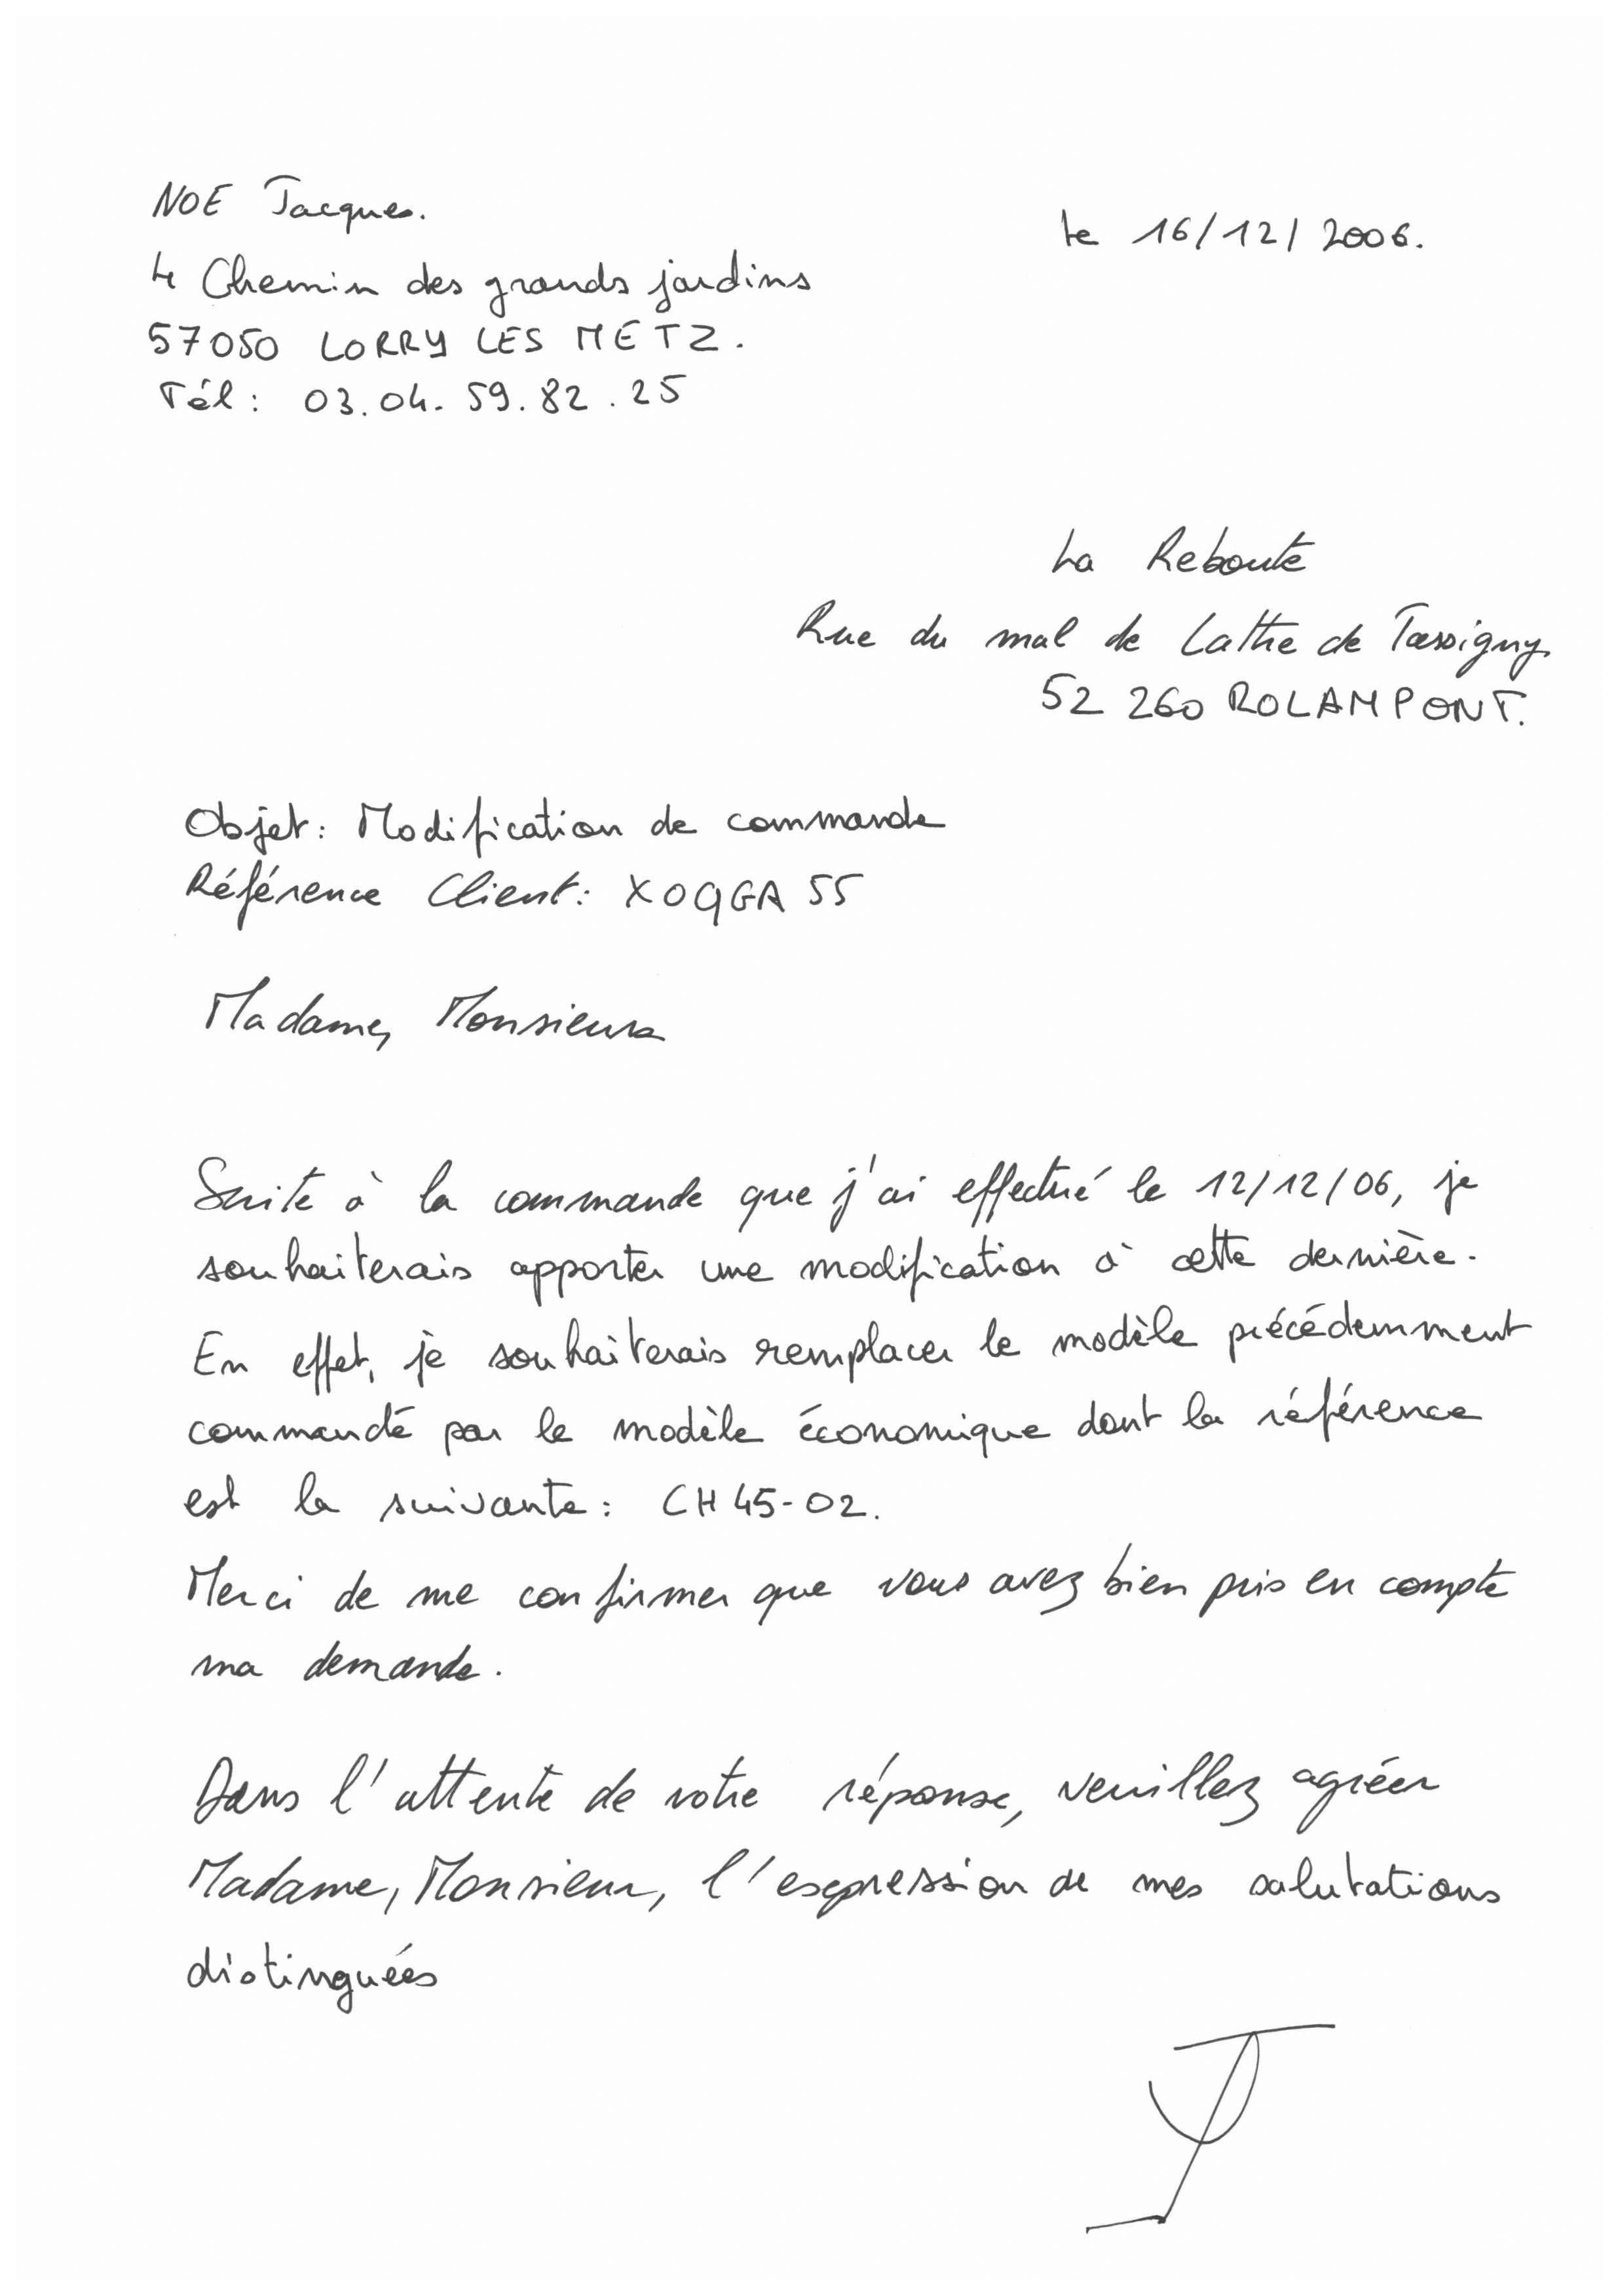 NOE Jacques.
le 16/12/2006.
4 Chemin des grands jardins
57050 LORRY LES METZ.
Tél : 03.04.59.82.25
La Reboute
Rue du mal de Lattre de Tassigny
52 260 ROLAMPONT.
Objet : Modification de commande
Référence Client : XOQGA 55
Madame, Monsieur
Suite à la commande que j'ai effectué le 12/12/06, je
souhaiterais apporter une modification à cette dernière.
En effet, je souhaiterais remplacer le modèle précédemment
commandé par le modèle économique dont la référence
est la suivante : CH45-02.
Merci de me confirmer que vous avez bien pris en compte
ma demande.
Dans l'attente de votre réponse, veuillez agréer
Madame, Monsieur, l'expression de mes salutations
distinguées